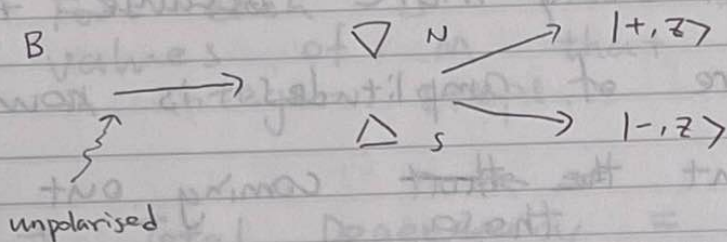 B
N
|+, z>
S
|-, z>
unpolarised